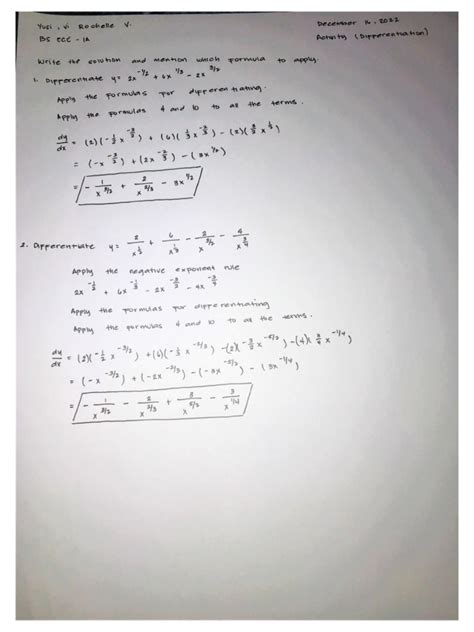 Yusi, Vi Rochelle V. December 16, 2022
BS ECE - 1A Activity (Differentiation)
Write the solution and mention which formula to apply.
1. Differentiate y = 2x^-1/2 + 6x^1/3 - 2x^3/2
Apply the formulas for differentiating.
Apply the formulas 4 and 10 to all the terms.
dy/dx = (2)(-1/2 x^-3/2) + (6)(1/3 x^-2/3) - (2)(3/2 x^1/2)
= (-x^-3/2) + (2x^-2/3) - (3x^1/2)
= -1/x^3/2 + 2/x^2/3 - 3x^1/2
2. Differentiate y = 2/x^1/2 + 6/x^1/3 - 2/x^3/2 - 4/x^3/4
Apply the negative exponent rule
2x^-1/2 + 6x^-1/3 - 2x^-3/2 - 4x^-3/4
Apply the formulas for differentiating
Apply the formulas 4 and 10 to all the terms.
dy/dx = (2)(-1/2 x^-3/2) + (6)(-1/3 x^-4/3) - (2)(-3/2 x^-5/2) - (4)(3/4 x^-1/4)
= (-x^-3/2) + (-2x^-4/3) - (-3x^-5/2) - (3x^-1/4)
= -1/x^3/2 - 2/x^4/3 + 3/x^5/2 - 3/x^1/4